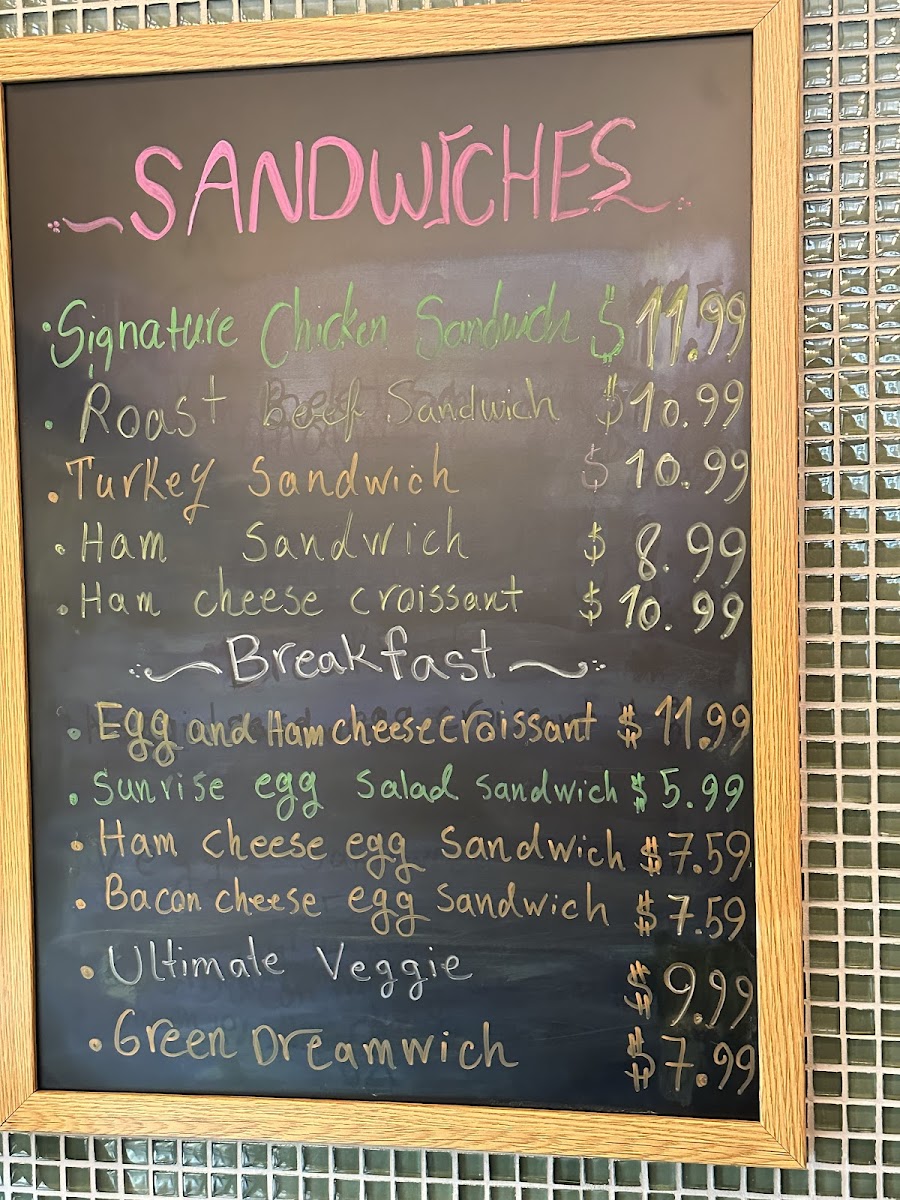 SANDWICHES
• Signature Chicken Sandwich $ 11.99
• Roast Beef Sandwich $10.99
• Turkey Sandwich $ 10.99
• Ham Sandwich $ 8.99
• Ham cheese croissant $ 10.99
Breakfast
• Egg and Ham cheese croissant $ 11.99
• Sunrise egg salad sandwich $5.99
• Ham cheese egg Sandwich $7.59
• Bacon cheese egg Sandwich $7.59
• Ultimate Veggie $9.99
• Green Dreamwich $7.99